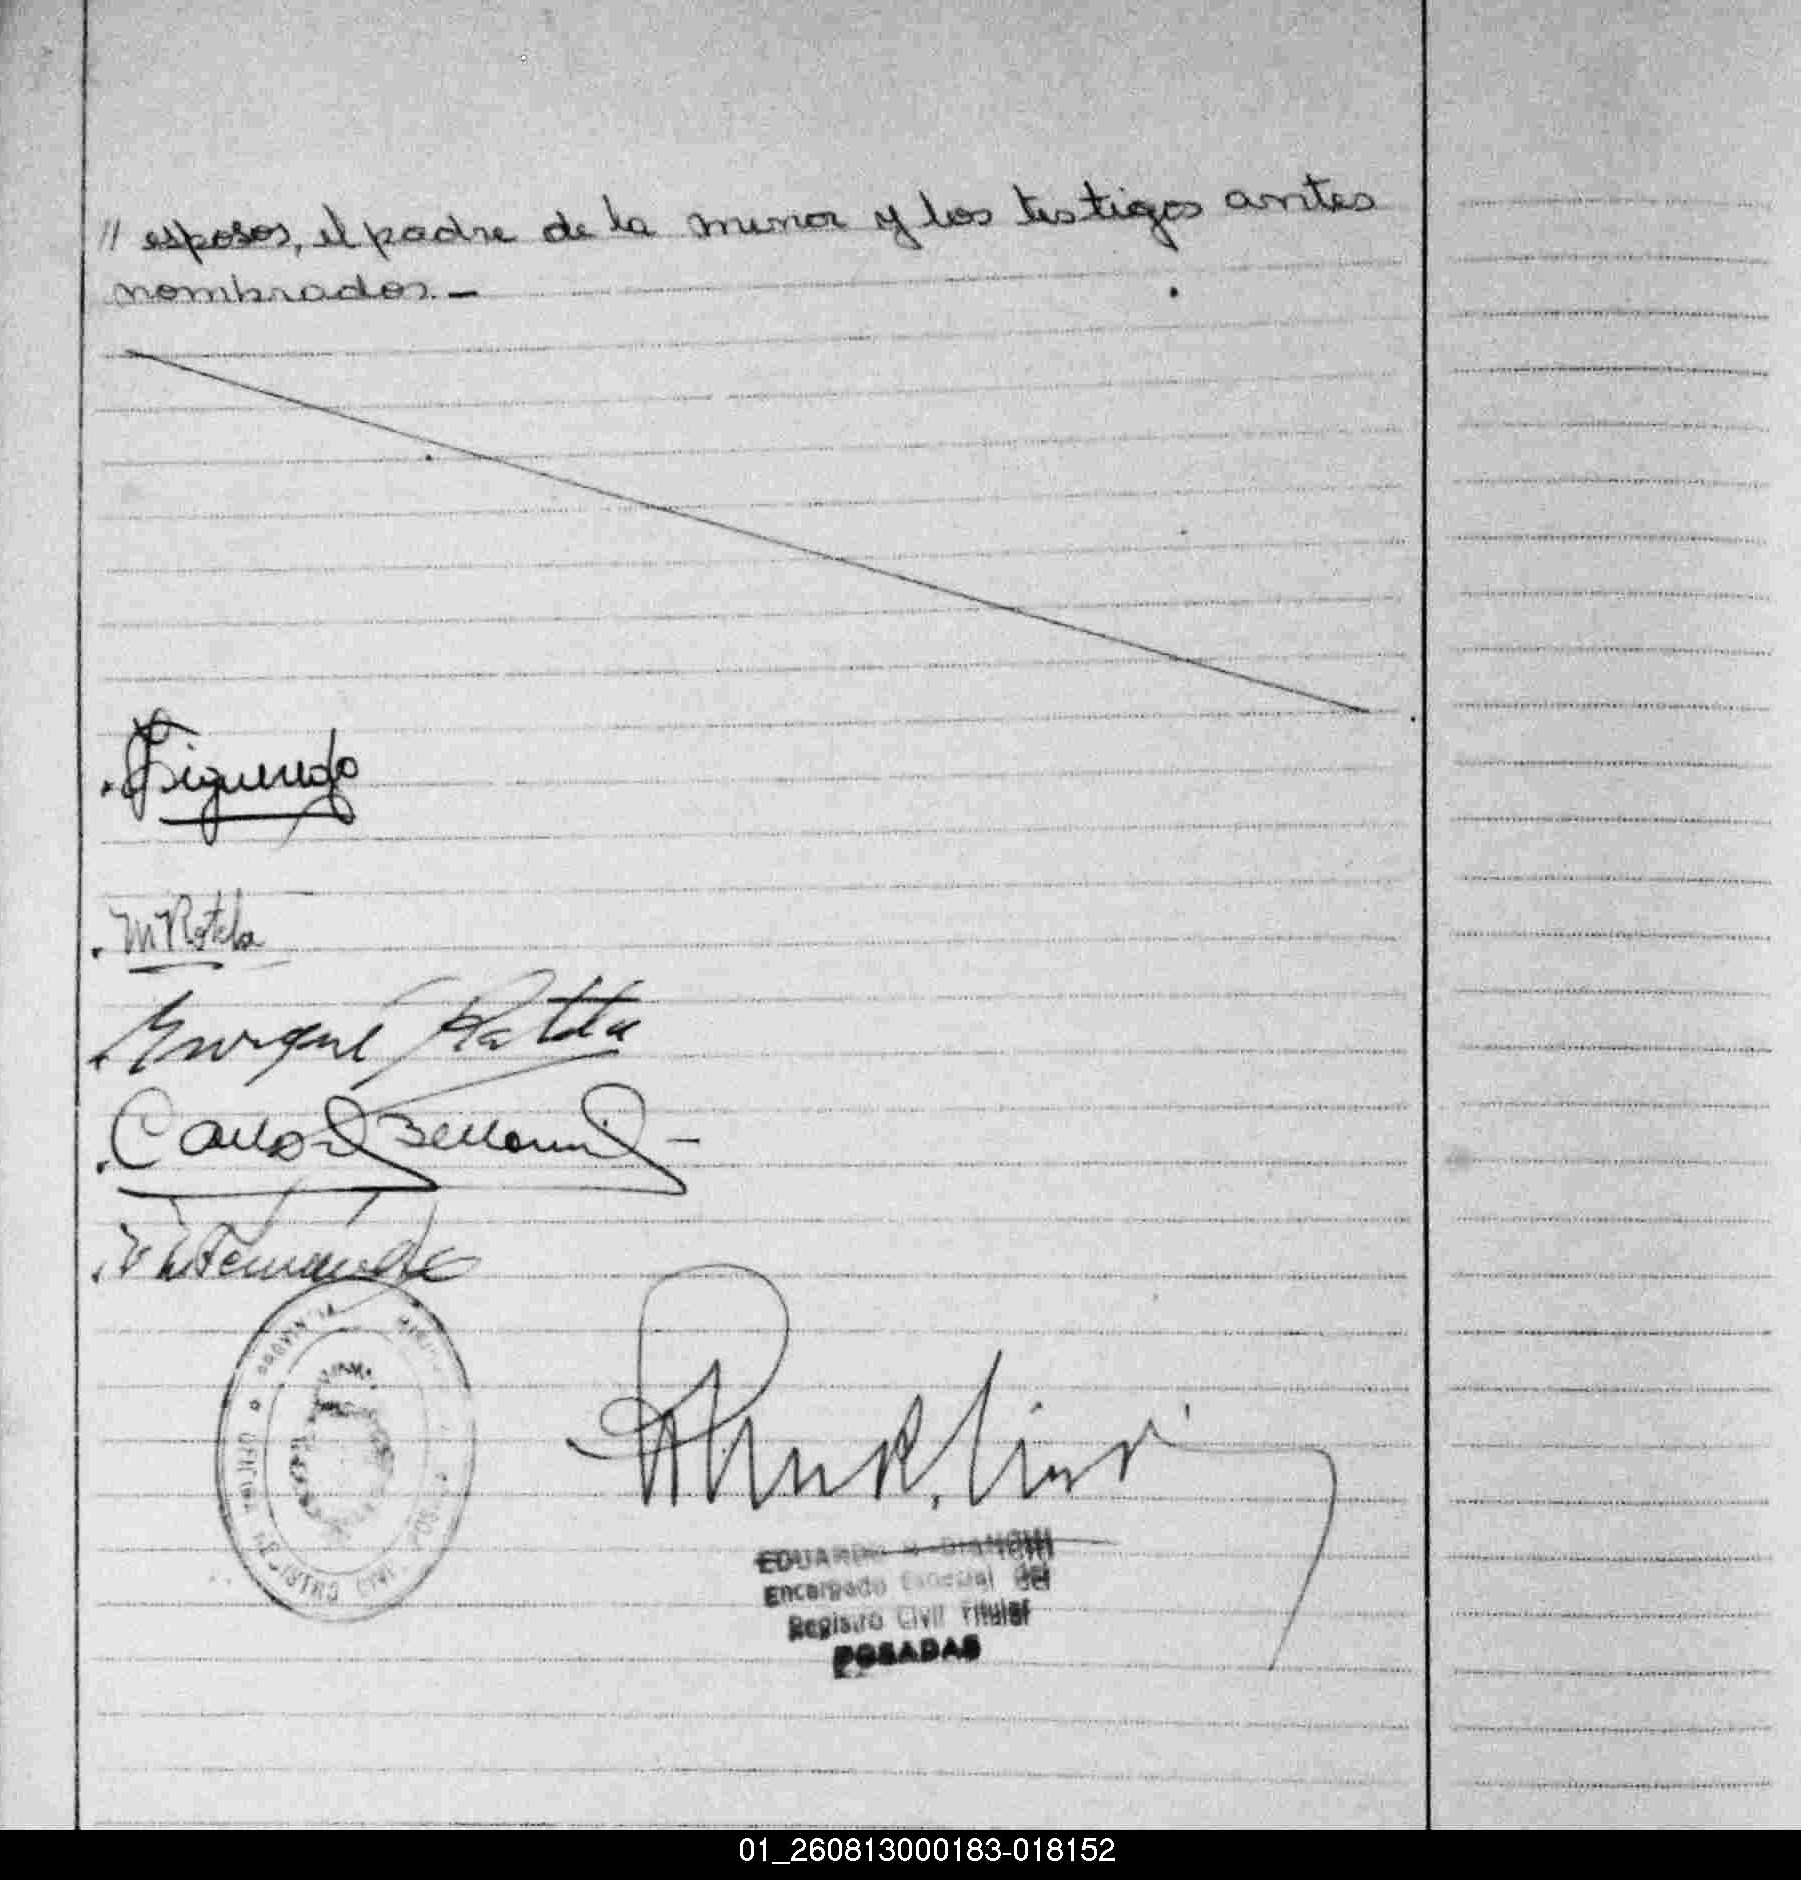 // esposos, el padre de la menor y los testigos antes
nombrados. —
. Figueredo
. M Rotela
. Enrique Rotela
. Carlos Bellomi —
Fernandez
PROVINCIA
OFICINA REGISTRO CIVIL
EDUARDO BIANCHI
Encargado Especial del
Registro Civil Titular
POSADAS
01_260813000183-018152